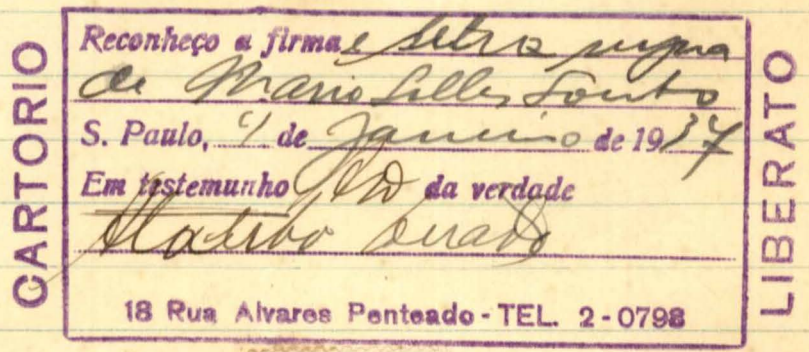 CARTORIO
Reconheço a firma e letra supra
de Mario
S. Paulo, 4 de Janeiro de 1937
Em testemunho da verdade
18 Rua Alvares Penteado - TEL. 2-0798
LIBERATO